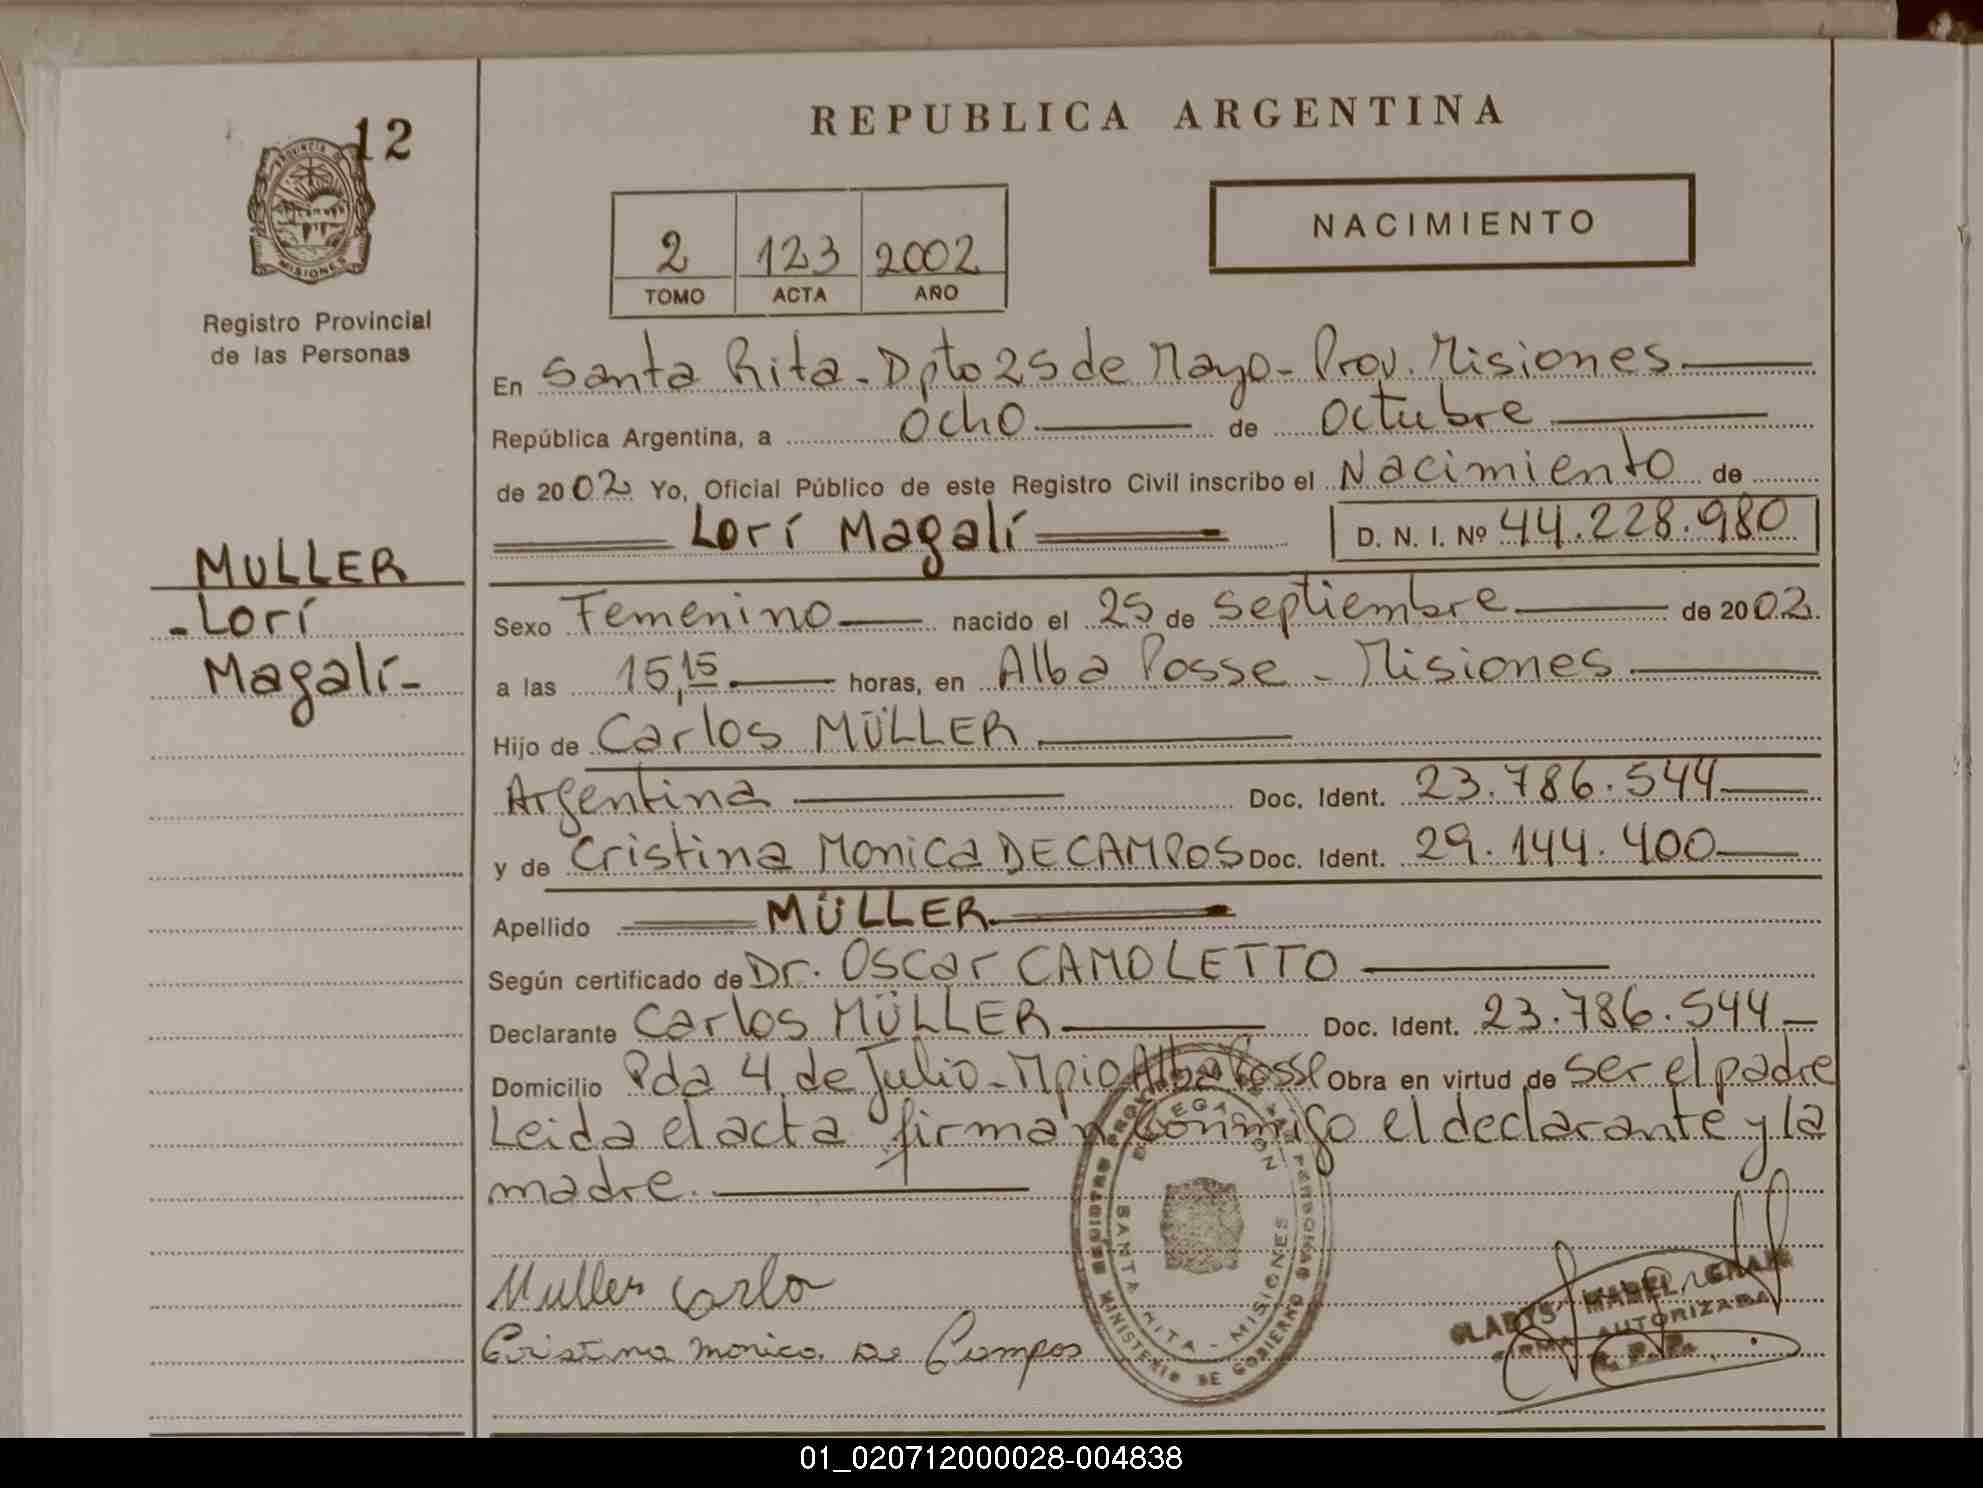 12
PROVINCIA DE
MISIONES
Registro Provincial
de las Personas
MULLER
-Lorí
Magalí-
REPUBLICA ARGENTINA
2 123 2002
TOMO ACTA AÑO
NACIMIENTO
En Santa Rita - Dpto 25 de Mayo - Prov. Misiones
República Argentina, a ocho de octubre
de 2002 Yo, Oficial Público de este Registro Civil inscribo el Nacimiento de
Lorí Magalí D. N. I. Nº 44.228.980
Sexo Femenino nacido el 25 de septiembre de 2002.
a las 15,15 horas, en Alba Posse - Misiones
Hijo de Carlos MÜLLER
Argentina Doc. Ident. 23.786.544
y de Cristina Monica DE CAMPOS Doc. Ident. 29.144.400
Apellido MÜLLER
Según certificado de Dr. Oscar CAMOLETTO
Declarante Carlos MÜLLER Doc. Ident. 23.786.544
Domicilio Pda 4 de Julio - Mpio Alba Posse Obra en virtud de ser el padre
Leida el acta firman conmigo el declarante y la
madre.
Muller Carlo
Cristina monica De Campos
DELEGACION
SANTA RITA - MISIONES
MINISTERIO DE GOBIERNO
GLADYS MABEL
FIRMA AUTORIZADA
R. P. P.
01_020712000028-004838